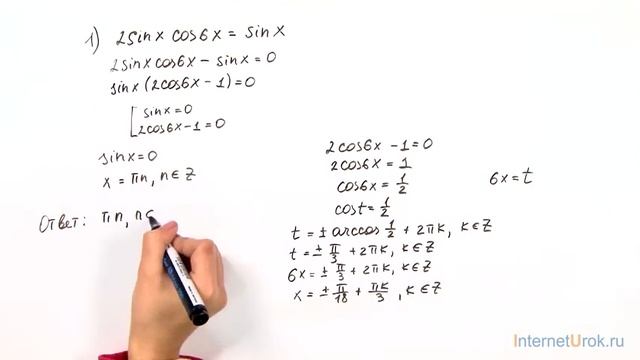 1) 2sinx cos6x = sinx
2sinx cos6x - sinx = 0
sinx (2cos6x - 1) = 0
[ sinx = 0
2cos6x - 1 = 0
sinx = 0
x = πn, n ∈ Z
Ответ: πn, n ∈
2cos6x - 1 = 0
2cos6x = 1
cos6x = 1/2
cost = 1/2
6x = t
t = ± arccos 1/2 + 2πk, k ∈ Z
t = ± π/3 + 2πk, k ∈ Z
6x = ± π/3 + 2πk, k ∈ Z
x = ± π/18 + πk/3, k ∈ Z
InternetUrok.ru